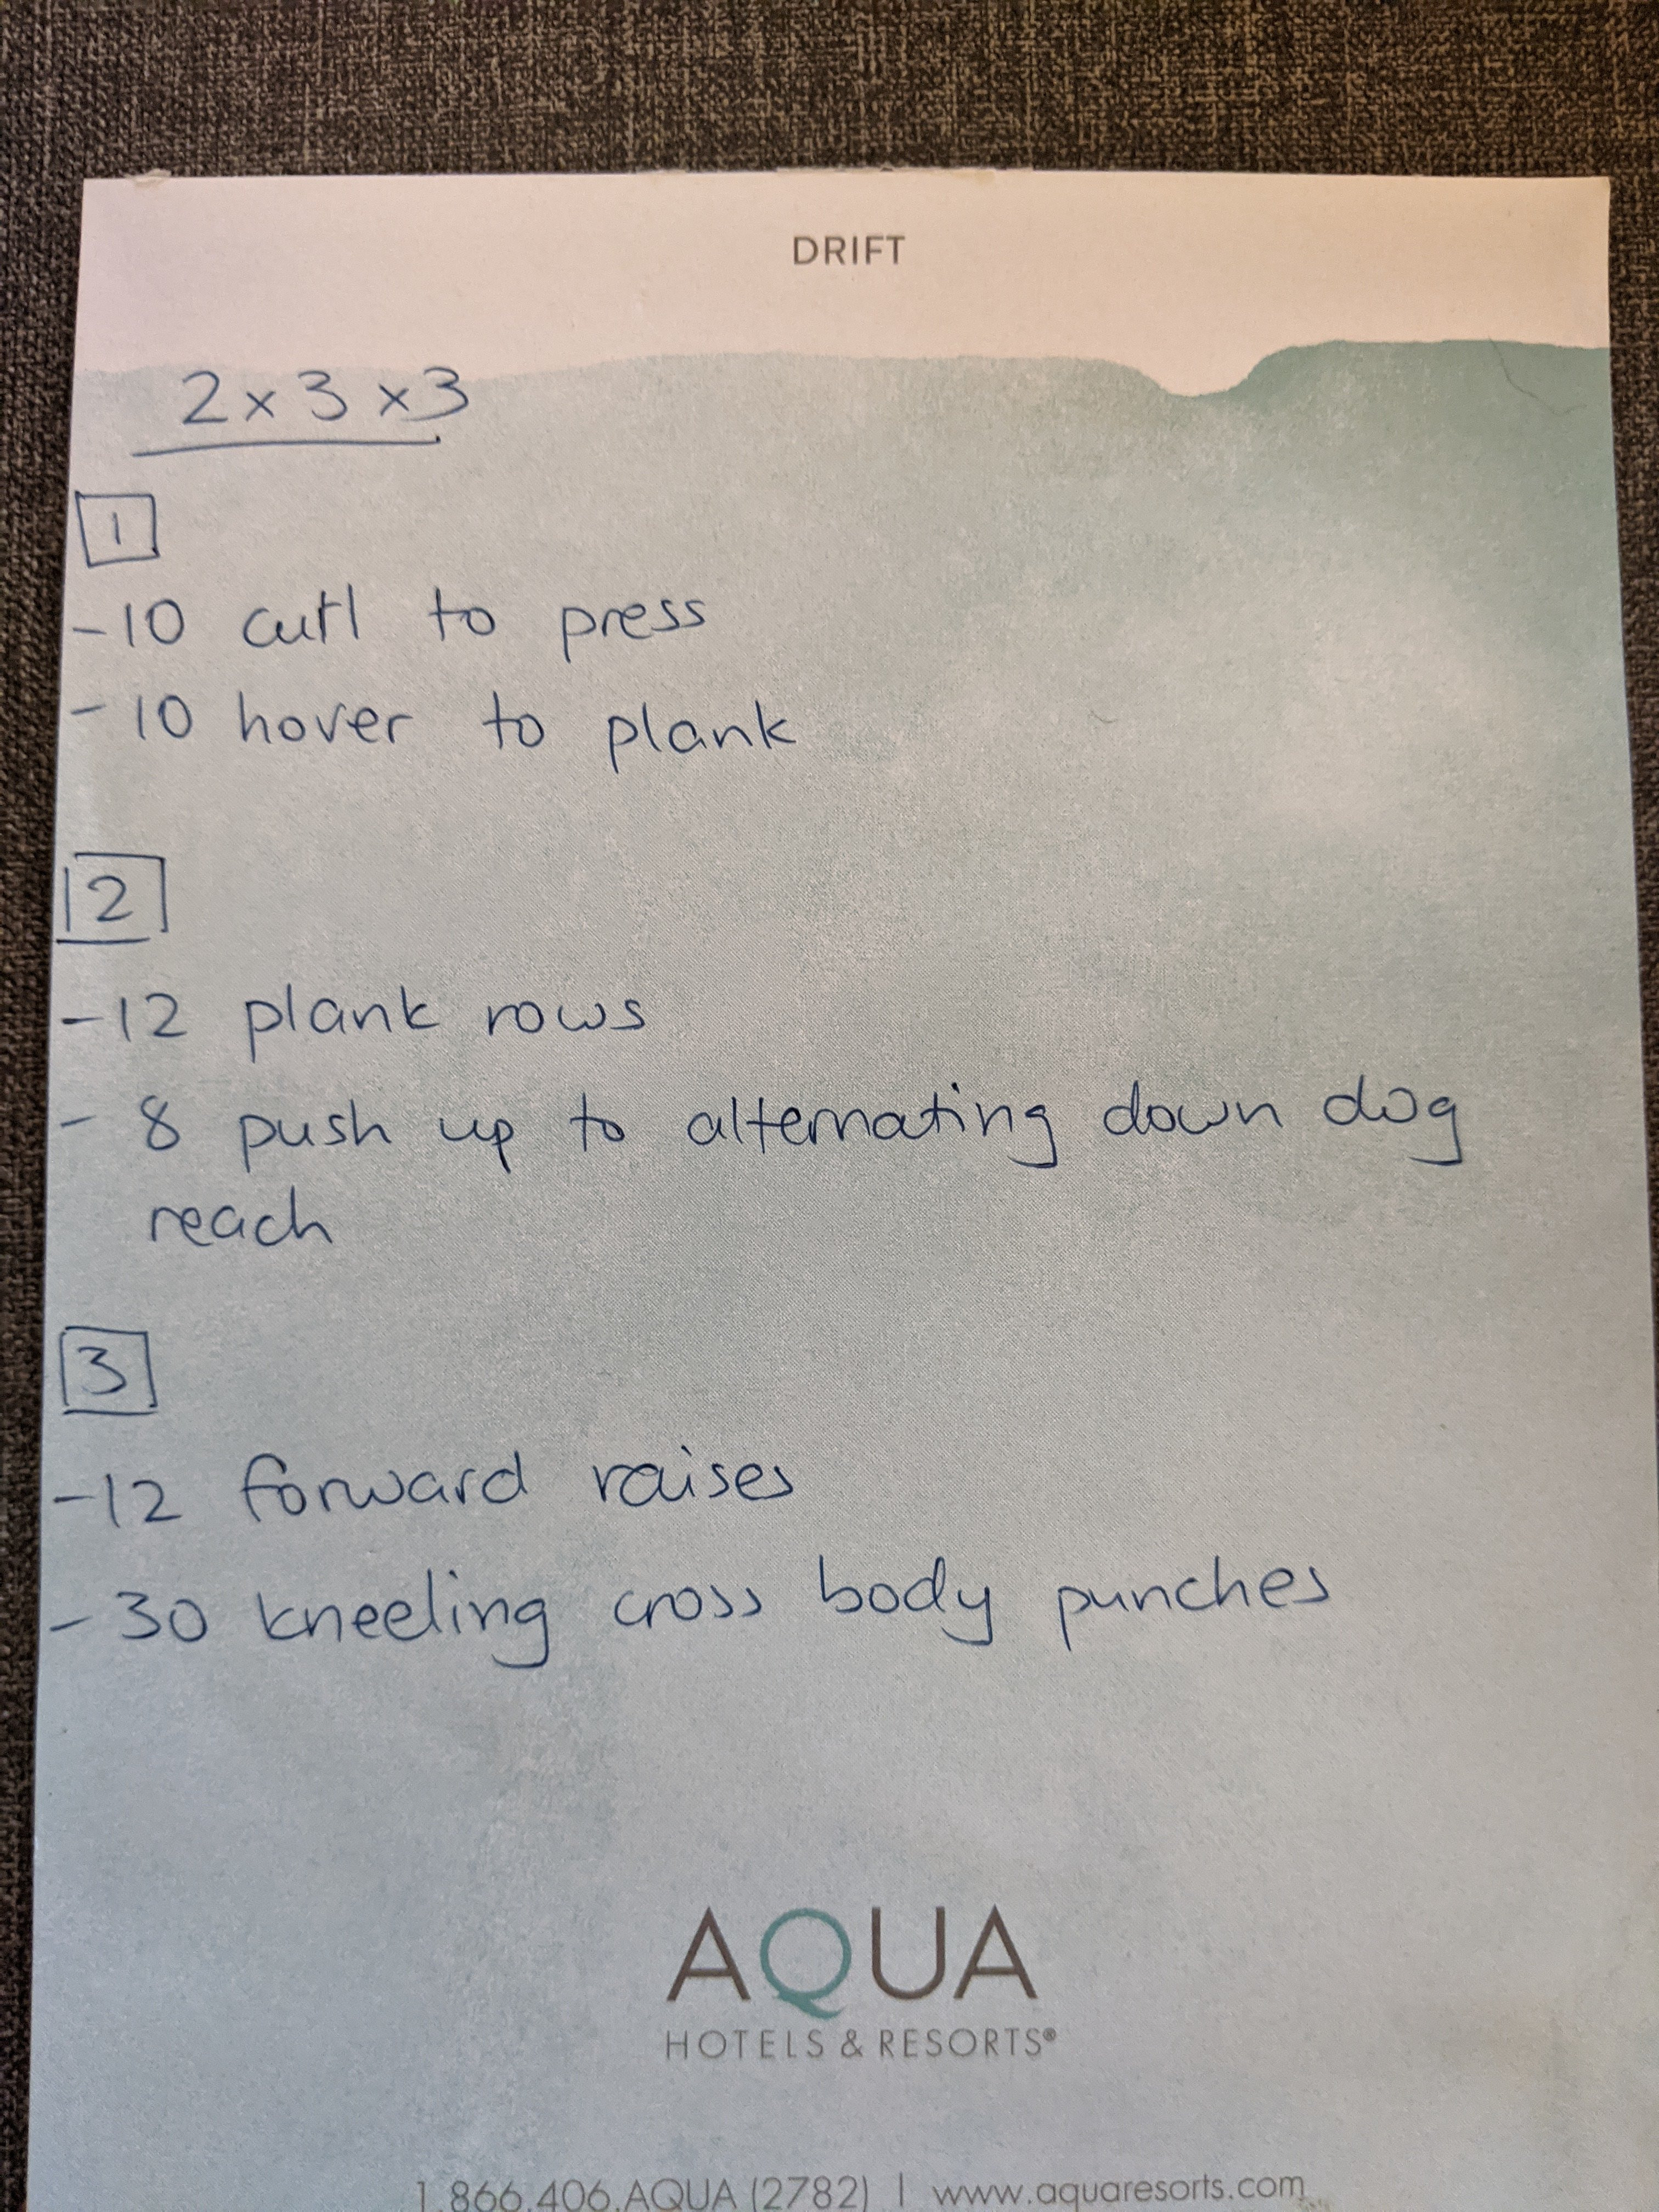 DRIFT
2x3x3
1
-10 curl to press
-10 hover to plank
2
-12 plank rows
- 8 push up to alternating down dog
reach
3
-12 forward raises
-30 kneeling cross body punches
AQUA
HOTELS & RESORTS®
1.866.406.AQUA (2782) | www.aquaresorts.com